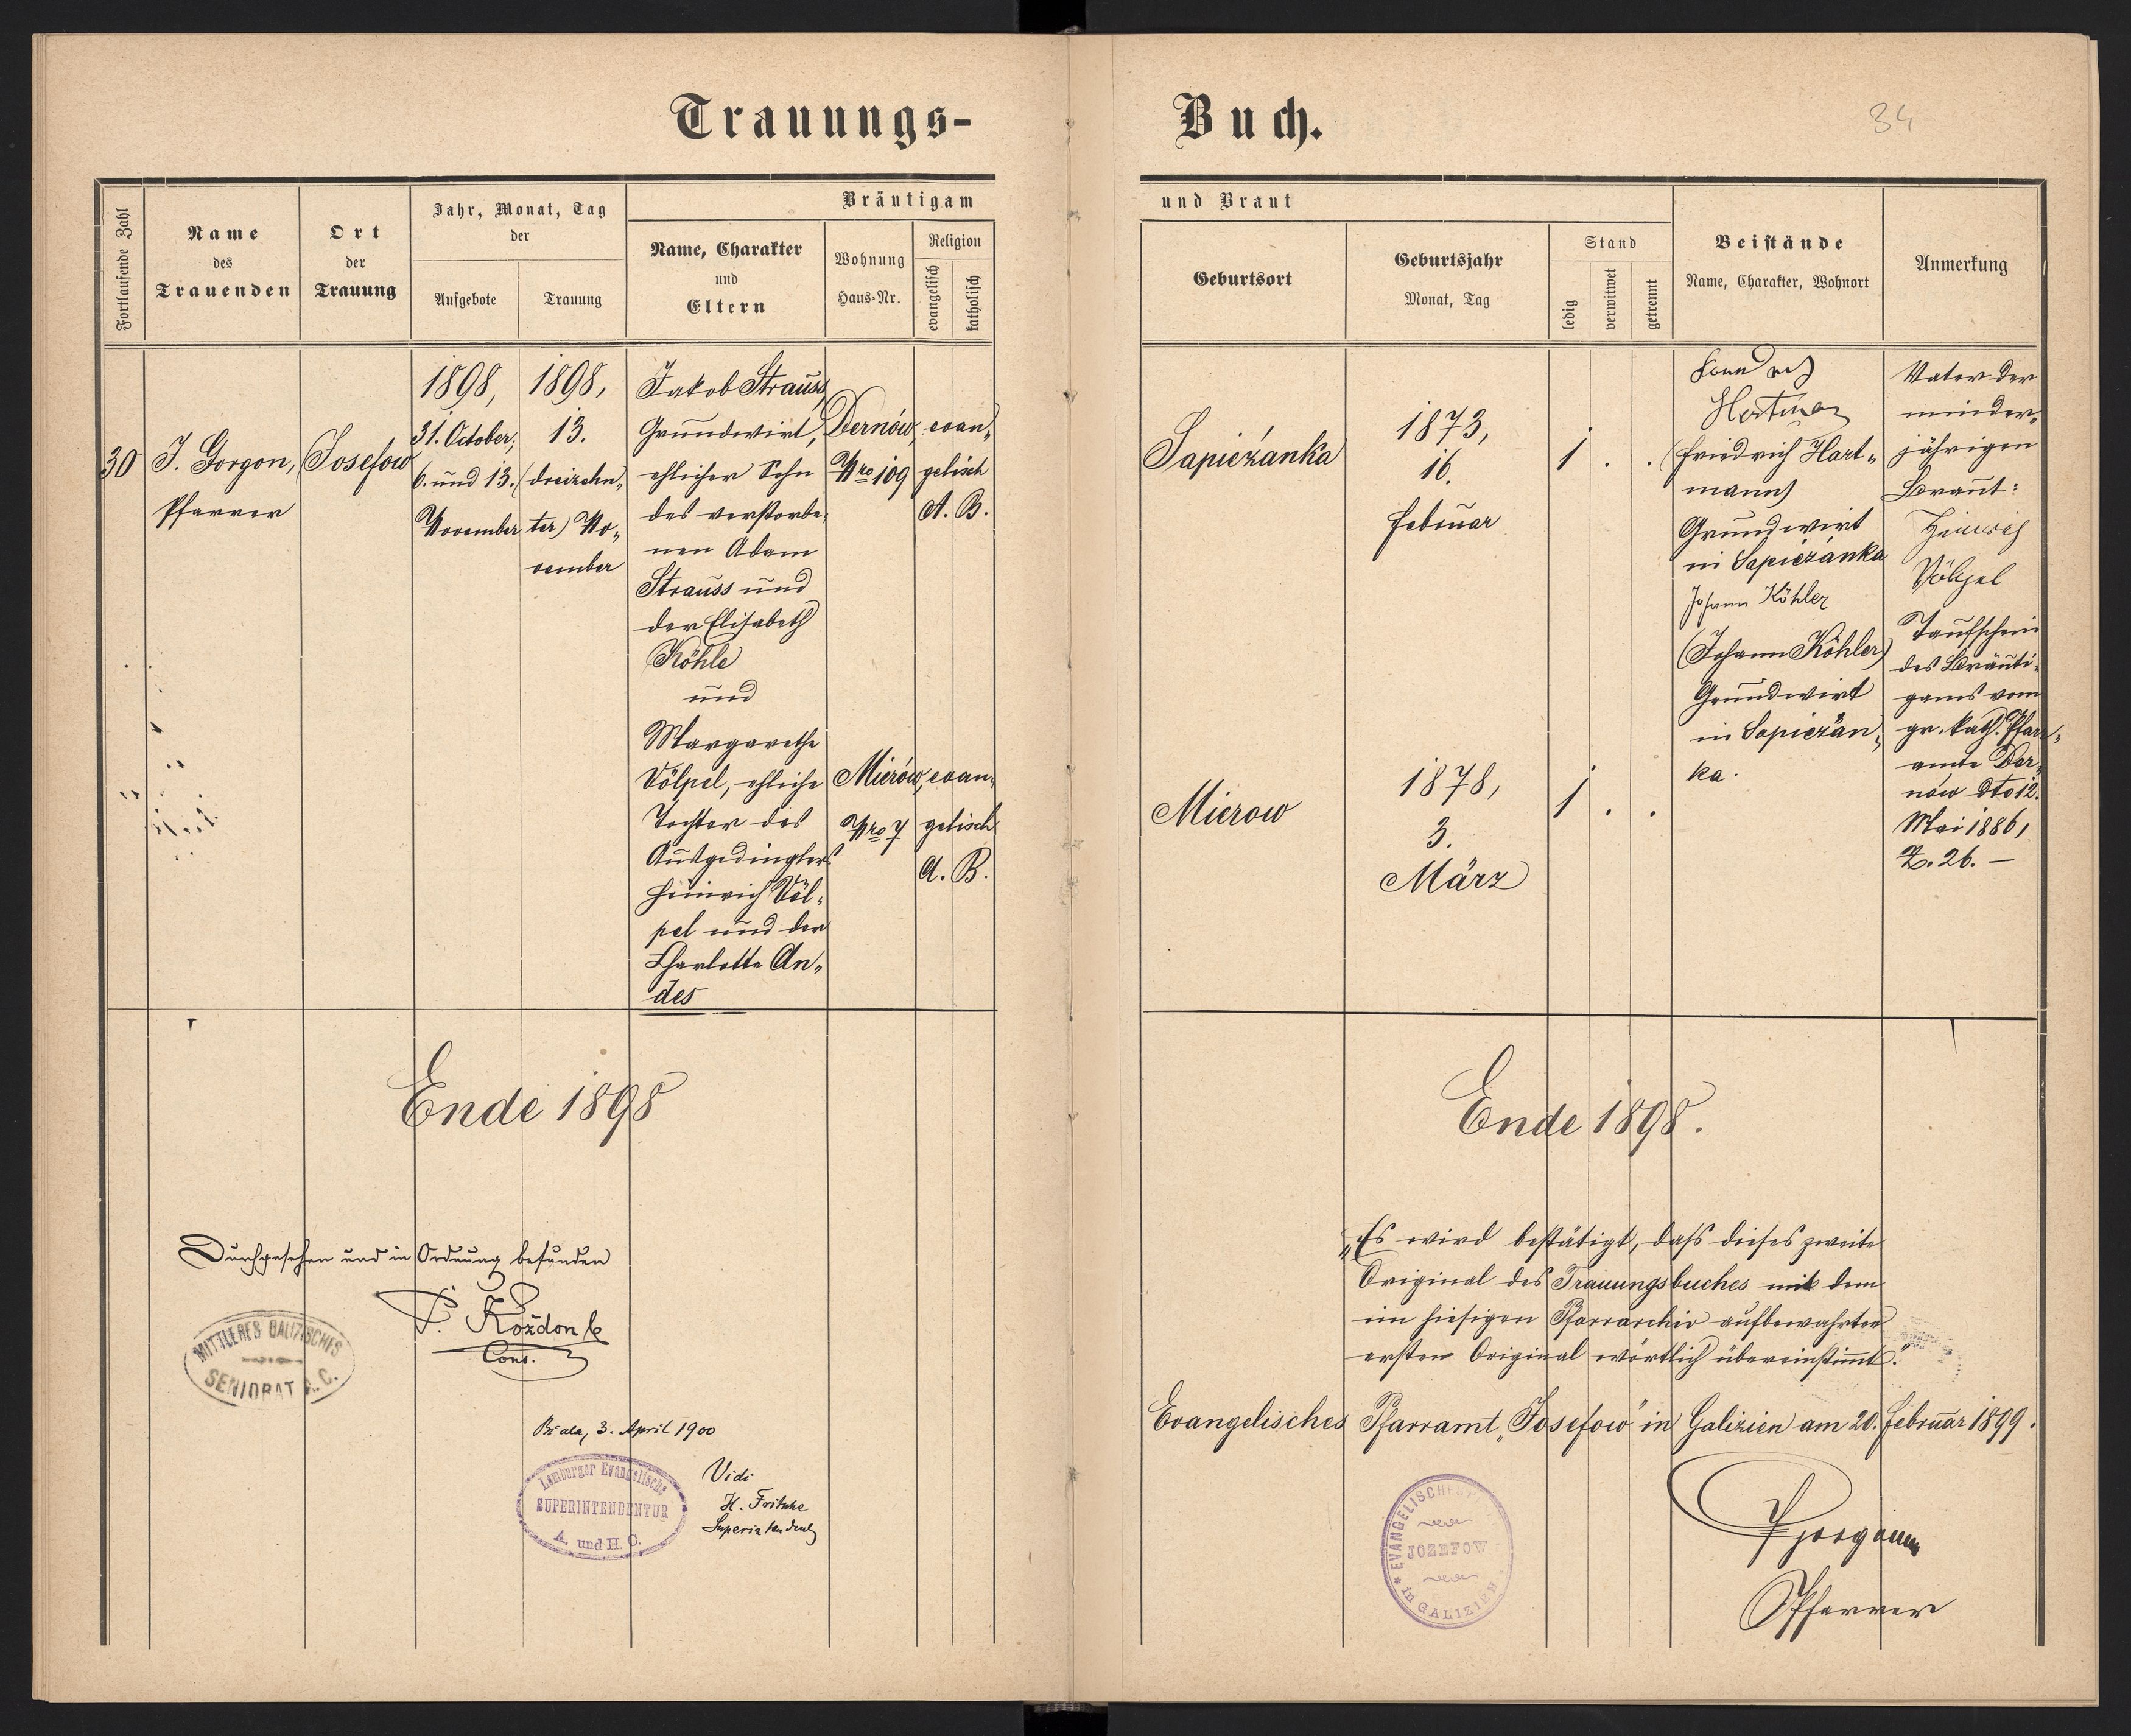 Trauungs-
Buch.
34
Fortlaufende Zahl
Name
des
Trauenden
Ort
der
Trauung
Jahr, Monat, Tag
der
Aufgebote
Trauung
Bräutigam
Name, Charakter
und
Eltern
Wohnung
Haus-Nr.
Religion
evangelisch
katholisch
und Braut
Geburtsort
Geburtsjahr
Monat, Tag
Stand
ledig
verwitwet
getrennt
Beistände
Name, Charakter, Wohnort
Anmerkung
30
J. Gorgon,
Pfarrer
Josefow
1898,
31. October,
6. und 13.
November
1898,
13.
(dreizehn„
ter) No„
vember
Jakob Strauss,
Grundwirt,
ehlicher Sohn
des verstorbe„
nen Adam
Strauss und
der Elisabeth
Köhle
und
Margarethe
Völpel, ehliche
Tochter des
Ausgedinglers
Heinrich Völ„
pel und der
Charlotte An„
des
Dernów
Nro 109
evan„
gelisch
A. B.
Mierów,
Nro 7
evan„
gelisch
A. B.
Sapieżanka
1873,
16.
Februar
1 . .
Mierow
1878,
3.
März
1 . .
Hartman
(Friedrich Hart„
mann)
Grundwirt
in Sapieżanka
Johann Köhler
(Johann Köhler)
Grundwirt
in Sapieżan„
ka.
Vater der
minder„
jährigen
Braut:
Heinrich
Völpel
Taufschein
des Bräuti„
gams vom
gr. kath. Pfarr„
amte Der„
nów dto 12.
Mai 1886,
Z. 26. —
Ende 1898
Ende 1898.
Durchgesehen und in Ordnung befunden
Kozdon
Cons.
MITTLERES GALIZISCHES
SENIORAT A. C.
Biala, 3. April 1900
Lemberger Evangelische
SUPERINTENDENTUR
A. und H. C.
Vidi
H. Fritsche
Superintendent
„Es wird bestätigt, dass dieses zweite
Original des Trauungsbuches mit dem
im hiesigen Pfarrarchiv aufbewahrten
ersten Original wörtlich übereinstimmt."
Evangelisches Pfarramt „Josefow" in Galizien am 20. Februar 1899.
EVANGELISCHES
JOZEFOW
in GALIZIEN
Pfarrer